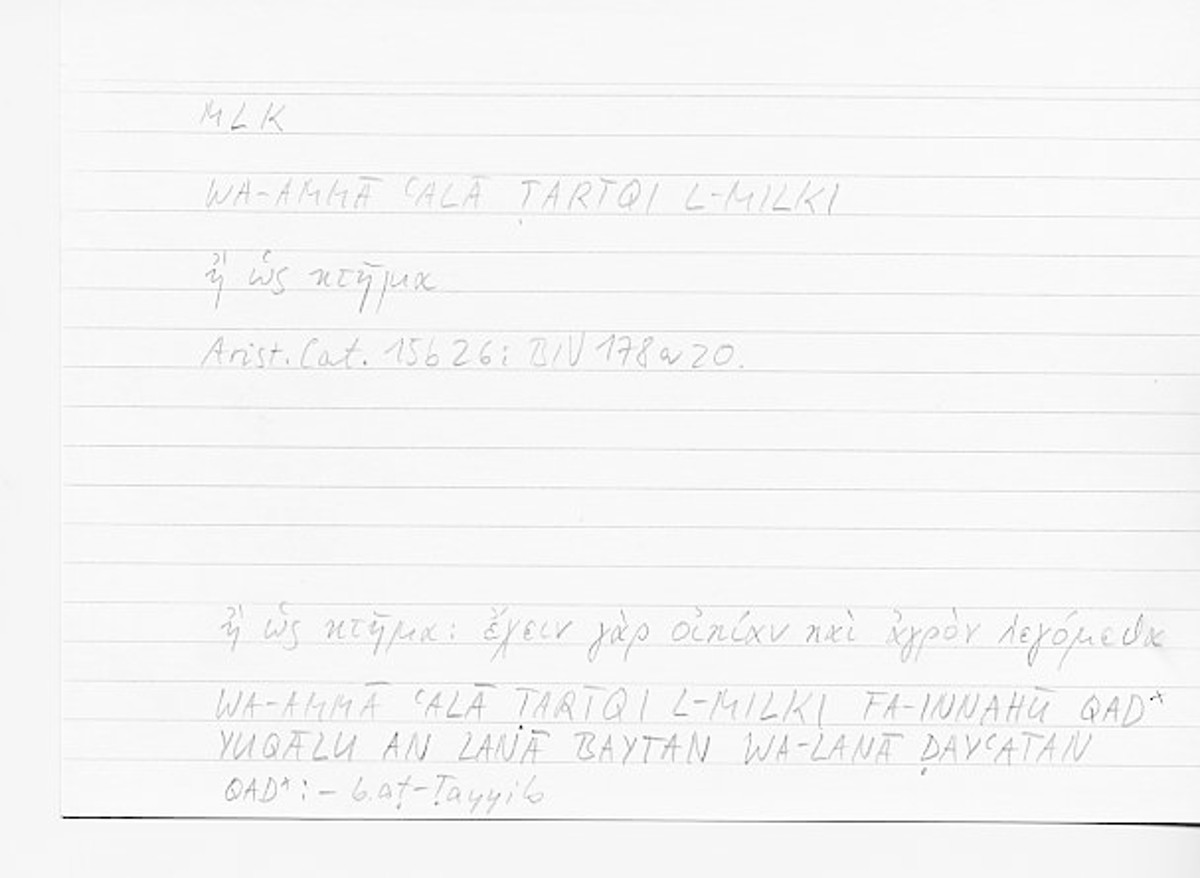 MLK
WA-AMMĀ ʿALĀ ṬARĪQI L-MILKI
ἢ ὡς κτῆμα
Arist. Cat. 15b26; BIV 178a20.
ἢ ὡς κτῆμα: ἔχειν γὰρ οἰκίαν καὶ ἀγρὸν λεγόμεθα
WA-AMMĀ ʿALĀ ṬARĪQI L-MILKI FA-INNAHŪ QAD*
YUQĀLU AN LANĀ BAYTAN WA-LANĀ ḌAYʿATAN
QAD*: – b. aṭ-Ṭayyib